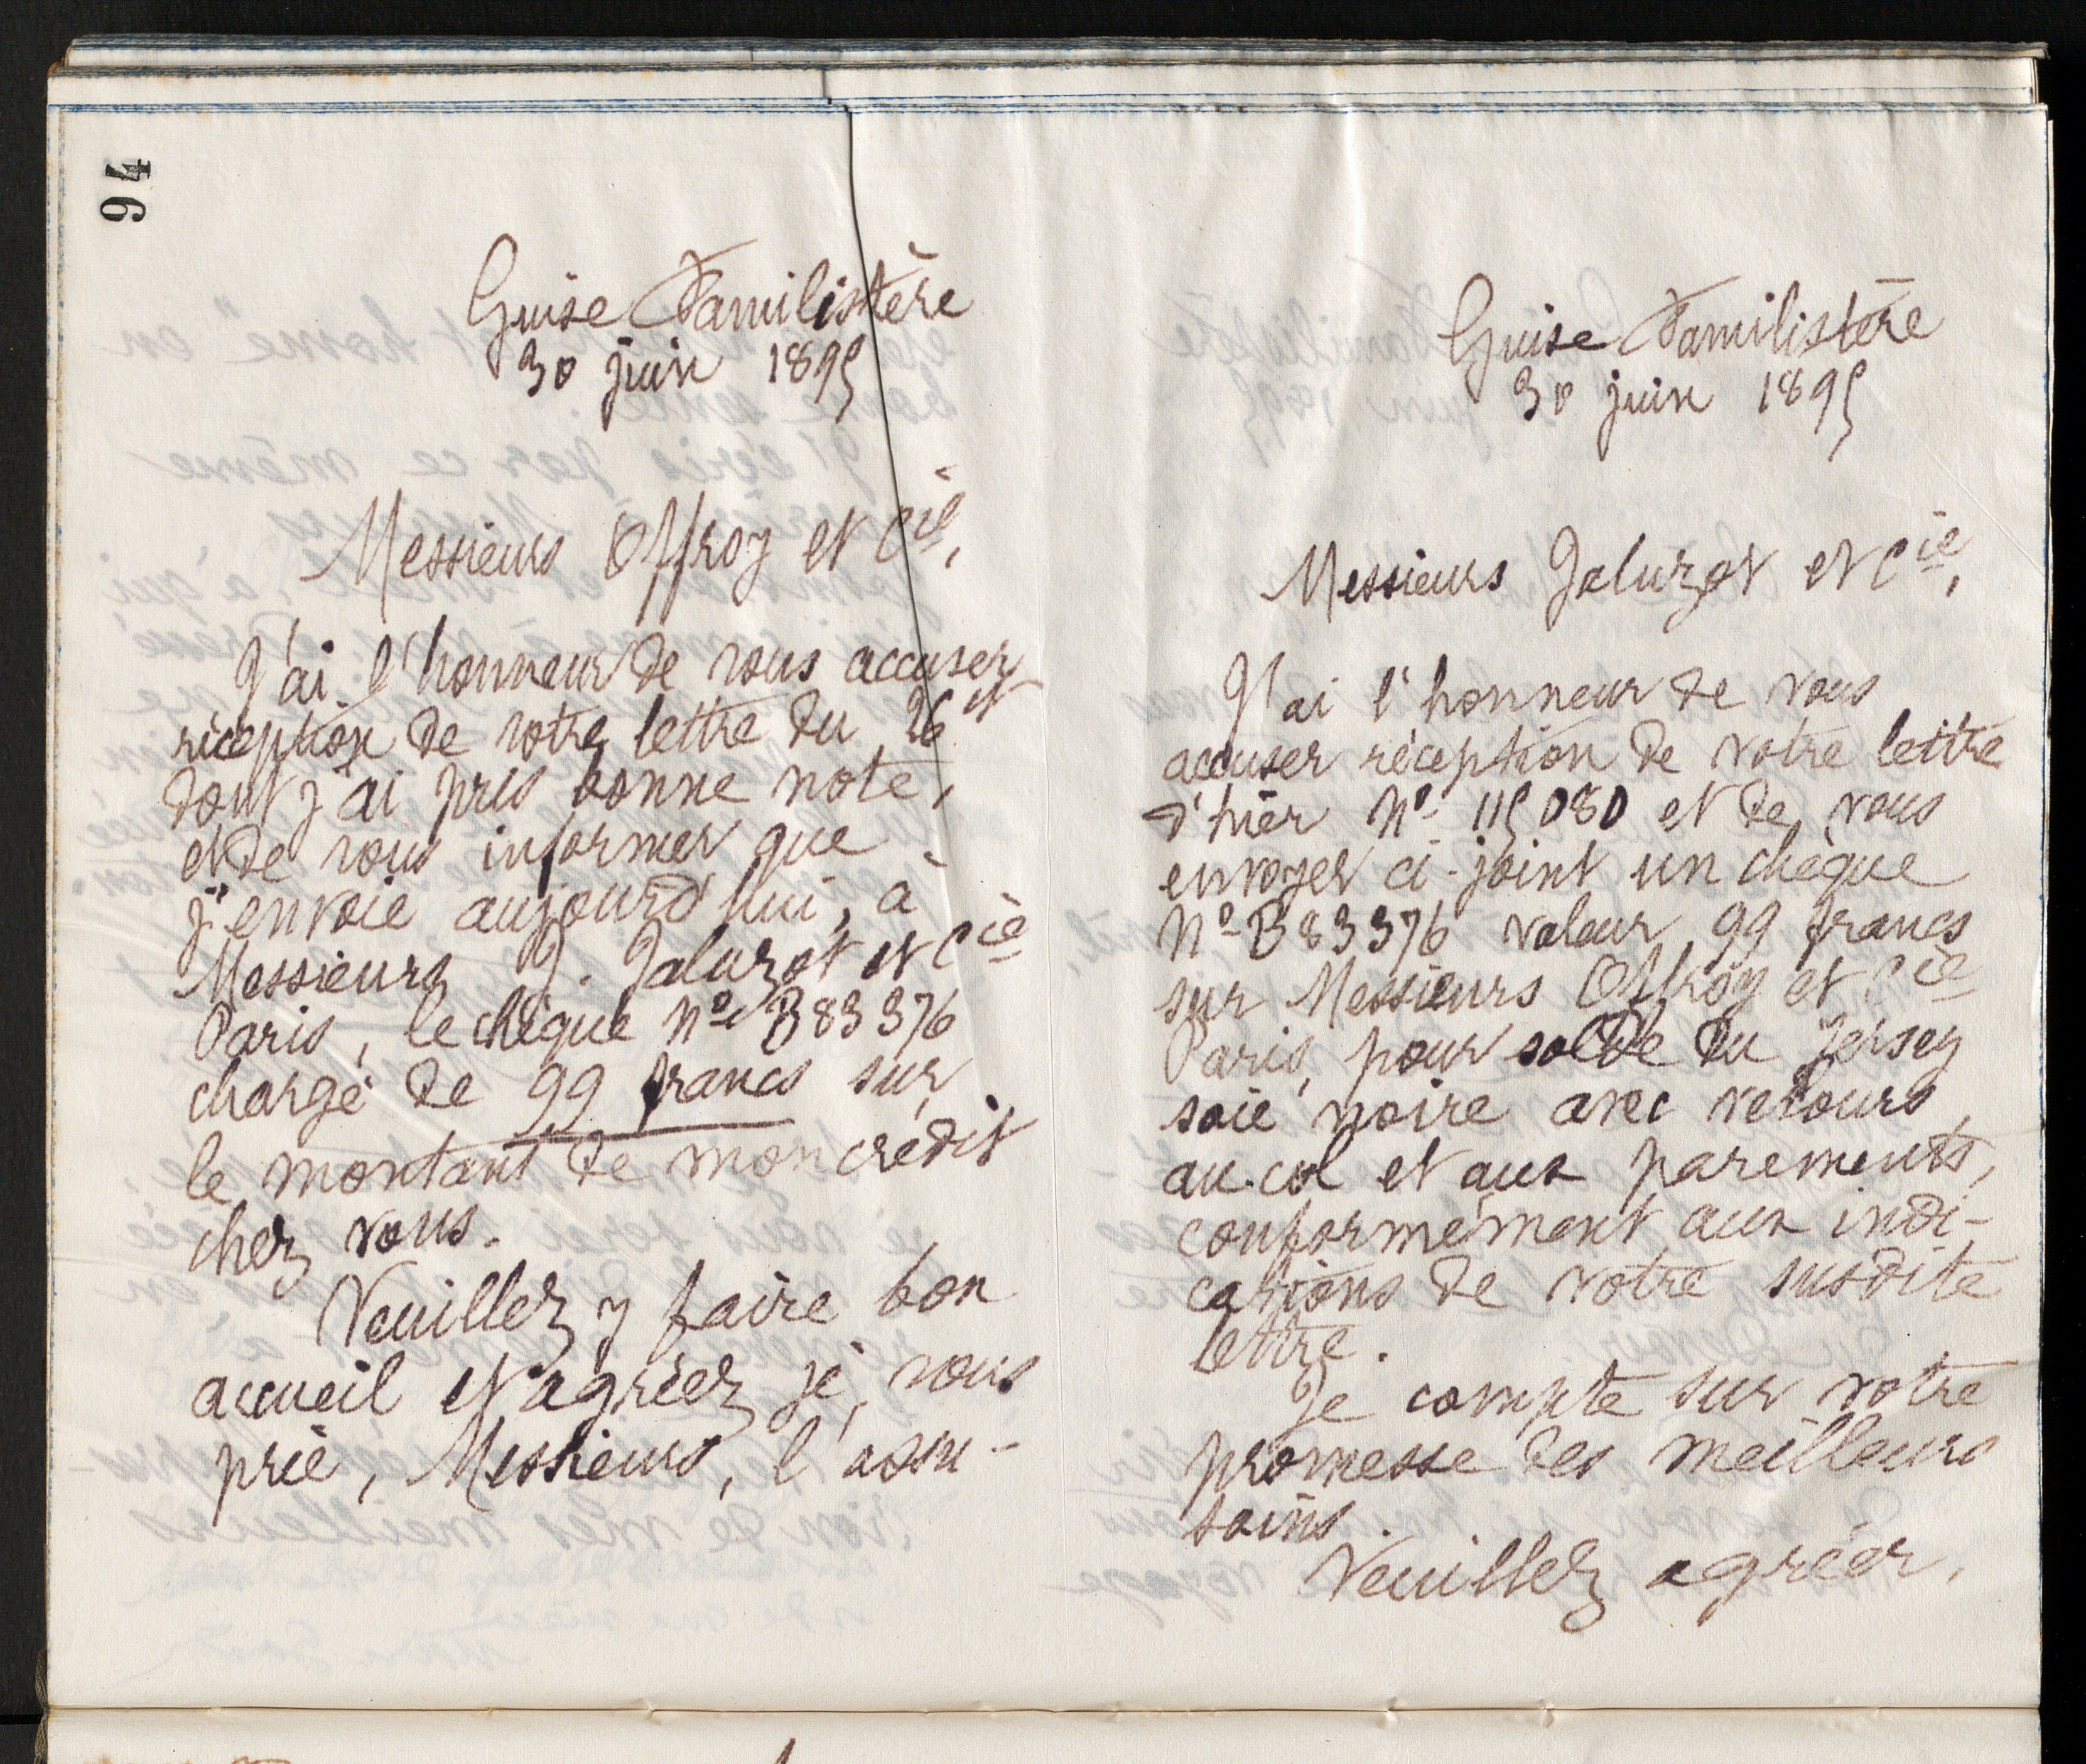 94
Guise Familistère
30 juin 1895
Messieurs Offroy et Cie,
J'ai l'honneur de vous accuser
réception de votre lettre du 26 ct
dont j'ai pris bonne note,
et de vous informer que
j'envoie aujourd'hui, à
Messieurs J. Jaluzot et Cie
Paris, le chèque No B83376
chargé de 99 francs sur
le montant de mon crédit
chez vous.
Veuillez y faire bon
accueil et agréez je vous
prie, Messieurs, l'assu-
Guise Familistère
30 juin 1895
Messieurs Jaluzot et Cie,
J'ai l'honneur de vous
accuser réception de votre lettre
d'hier No 115080 et de vous
envoyer ci-joint un chèque
No B83376 valeur 99 francs
sur Messieurs Offroy et Cie
Paris, pour solde du Jersey
soie noire avec velours
au col et aux parements,
conformément aux indi-
cations de votre susdite
lettre.
Je compte sur votre
promesse des meilleurs
soins.
Veuillez agréer,